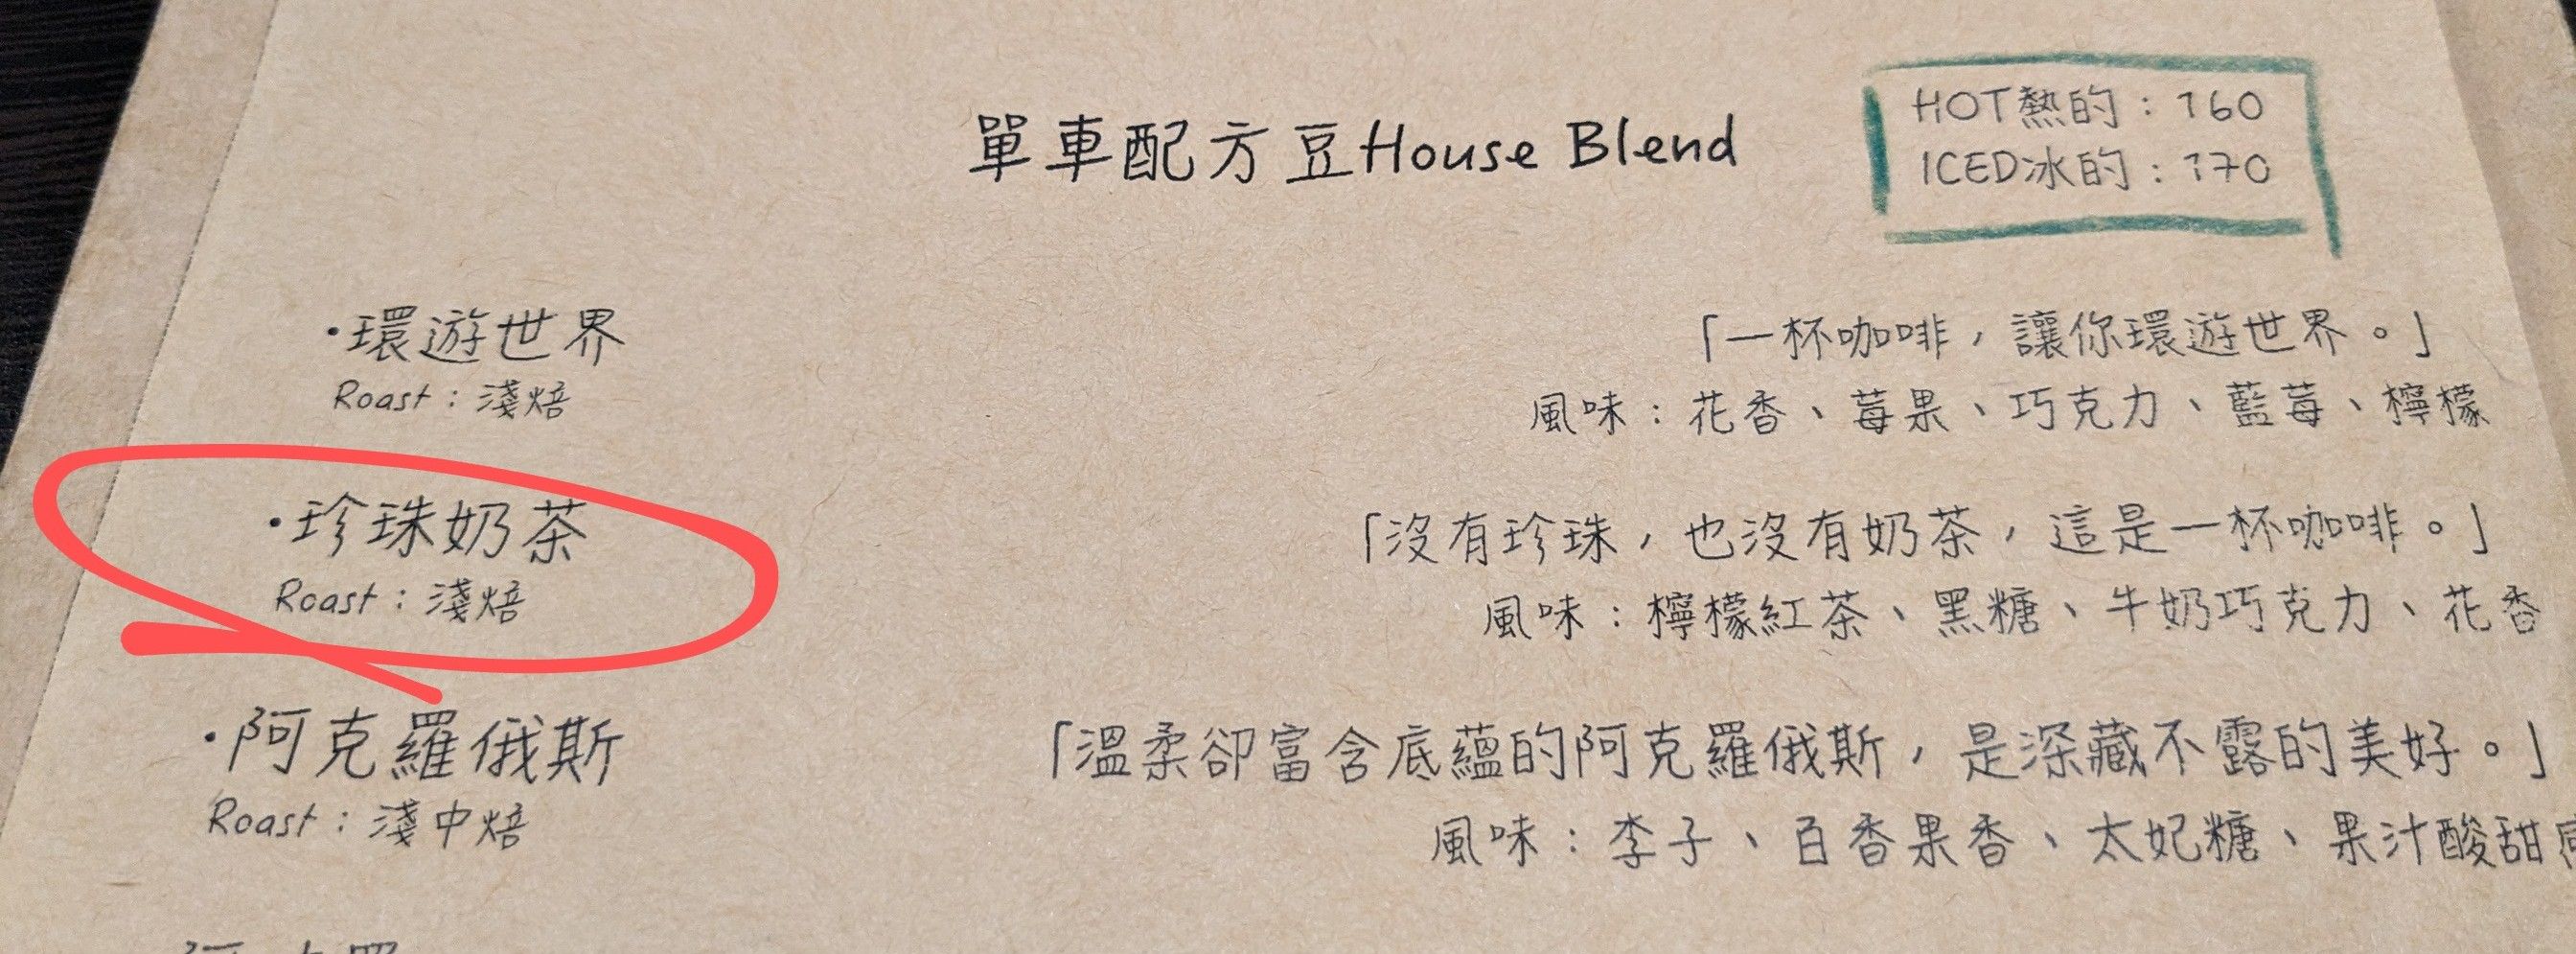 單車配方豆House Blend
HOT熱的：160
ICED冰的：170
·環遊世界
「一杯咖啡，讓你環遊世界。」
Roast：淺焙
風味：花香、莓果、巧克力、藍莓、檸檬
·珍珠奶茶
「沒有珍珠，也沒有奶茶，這是一杯咖啡。」
Roast：淺焙
風味：檸檬紅茶、黑糖、牛奶巧克力、花香
·阿克羅俄斯
「溫柔卻富含底蘊的阿克羅俄斯，是深藏不露的美好。」
Roast：淺中焙
風味：李子、百香果香、太妃糖、果汁酸甜